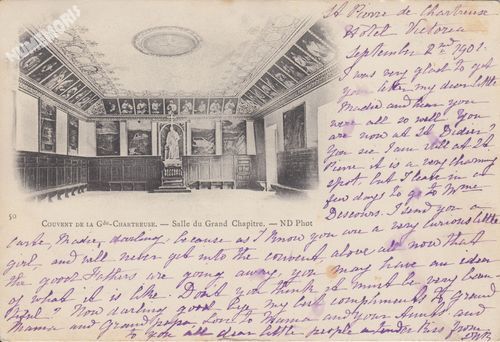 NUMEMORIS
St Pierre de Chartreuse
Hotel Victoria
September 2nd 1901.
I was very glad to get
your letter, my dear little
Madie and hear you
were all so well. You
are now at St Didier?
You see I am still at St
Pierre it is a very charming
spot, but I leave in a
few days to go to Mme
Descours. I send you a
50
COUVENT DE LA Gde-CHARTREUSE. — Salle du Grand Chapitre. — ND Phot
carte, Madie, darling, because as I know you are a very curious little
girl, and will never get into the convent, above all now that
the good Fathers are going away, you may have an idea
of what it is like. Don't you think it must be very
Now darling give my best compliments to Grand
Mama and Grand papa, Love to Mama and your Aunts and
to you all dear little people a tender kiss from